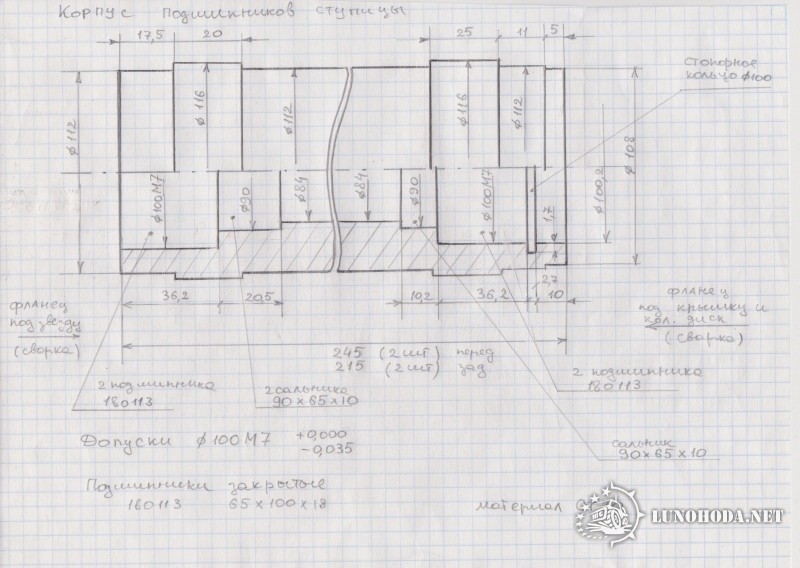 Корпус подшипников ступицы
17,5 20 25 11 5
стопорное
кольцо ф100
ф112
ф116
ф112
ф116
ф112
ф108
ф100М7
ф90
ф84
ф84
ф90
ф100М7
1,7
ф100,2
2,7
36,2 20,5 10,2 36,2 10
фланец
под звезду
(сварка)
фланец
под крышку и
кол. диск
(сварка)
245 (2шт) перед
215 (2шт) зад
2 подшипника
160113
2 сальника
90 х 65 х 10
2 подшипника
180113
сальник
90 х 65 х 10
Допуски ф100М7 +0,000
-0,035
Подшипники закрытые
160113 65 х 100 х 18
материал
LUNOHODA.NET